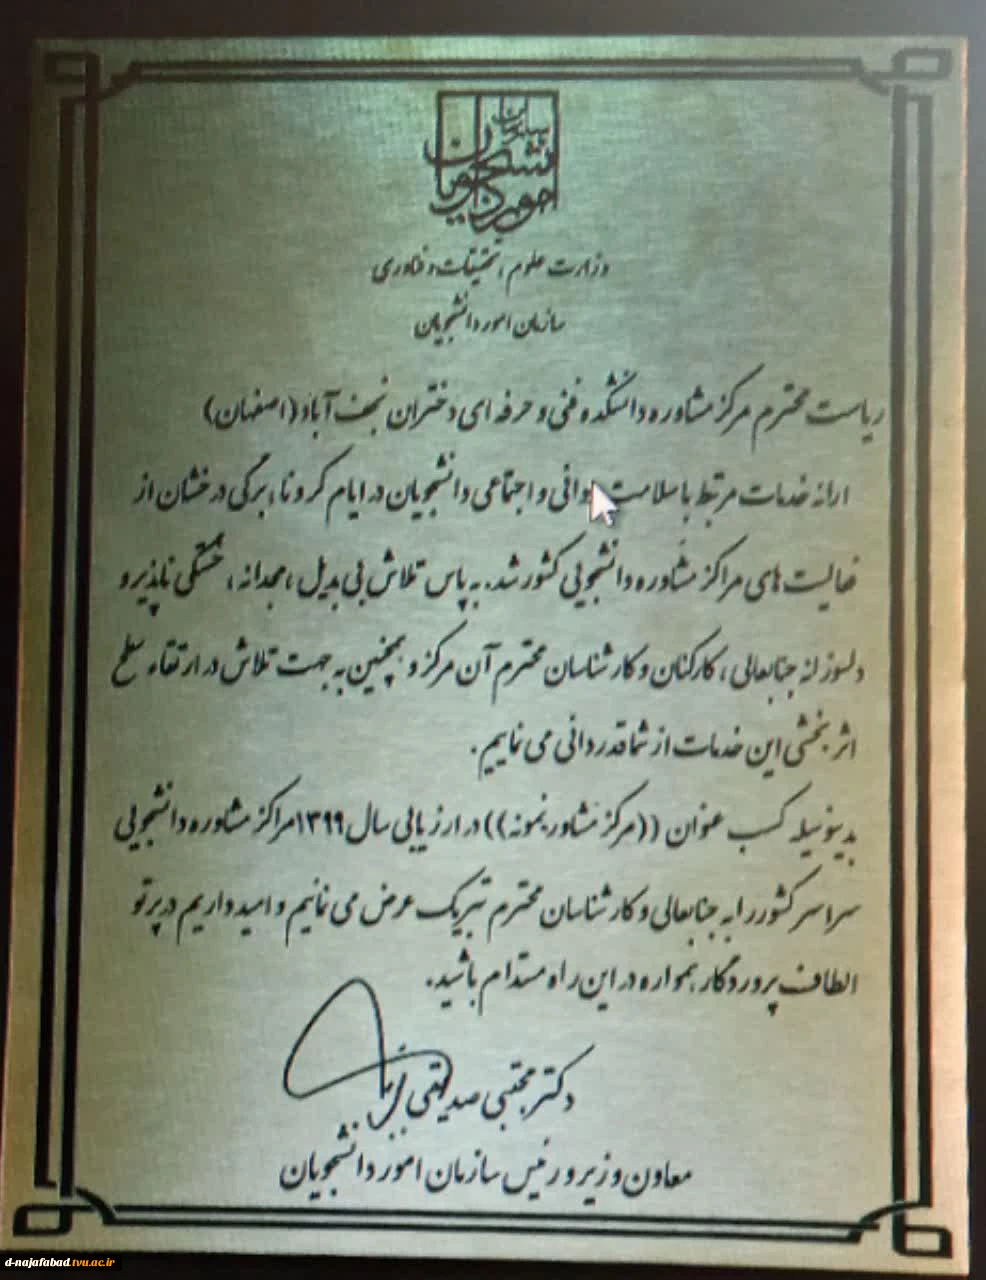 سازمان امور دانشجویان
وزارت علوم، تحقیقات و فناوری
سازمان امور دانشجویان
ریاست محترم مرکز مشاوره دانشکده فنی و حرفه ای دختران نجف آباد (اصفهان)
ارائه خدمات مرتبط با سلامت روانی و اجتماعی دانشجویان در ایام کرونا، برگی درخشان از
فعالیت های مراکز مشاوره دانشجویی کشور شد. به پاس تلاش بی بدیل، مجدانه، خستگی ناپذیر و
دلسوزانه جنابعالی، کارکنان و کارشناسان محترم آن مرکز و همچنین به جهت تلاش در ارتقاء سطح
اثربخشی این خدمات از شما قدردانی می نماییم.
بدینوسیله کسب عنوان ((مرکز مشاور نمونه)) در ارزیابی سال ۱۳۹۹ مراکز مشاوره دانشجویی
سراسر کشور را به جنابعالی و کارشناسان محترم تبریک عرض می نمائیم و امید داریم در پرتو
الطاف پروردگار همواره در این راه مستدام باشید.
دکتر مجتبی صدیقی
معاون وزیر و رئیس سازمان امور دانشجویان
d-najafabad.tvu.ac.ir